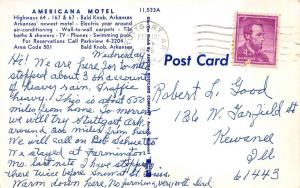 AMERICANA MOTEL
Highways 64 - 167 & 67 - Bald Knob, Arkansas
Arkansas' newest motel - Electric year around
air-conditioning - Wall-to-wall carpets - Tile
baths & showers - TV - Phones - Swimming pool.
For Reservations Call Parkview 4-3204
Area Code 501 Bald Knob, Arkansas
11,533A
Post Card
Wednesday
Hi! We are here for to-nite
stopped about 3 oh account
of heavy rain, Traffic
heavy. This is about 500
miles from home. To-morrow
we will try Stuttgart Ark
around, 200 miles from here
We will call on Bob Schuelts
We stayed at Farmington
Mo. last nite I have stopped
there twice before
Warm down here, No farming very wet
Robert L. Good
136 W. Garfield St
Kewanee
Ill
61443